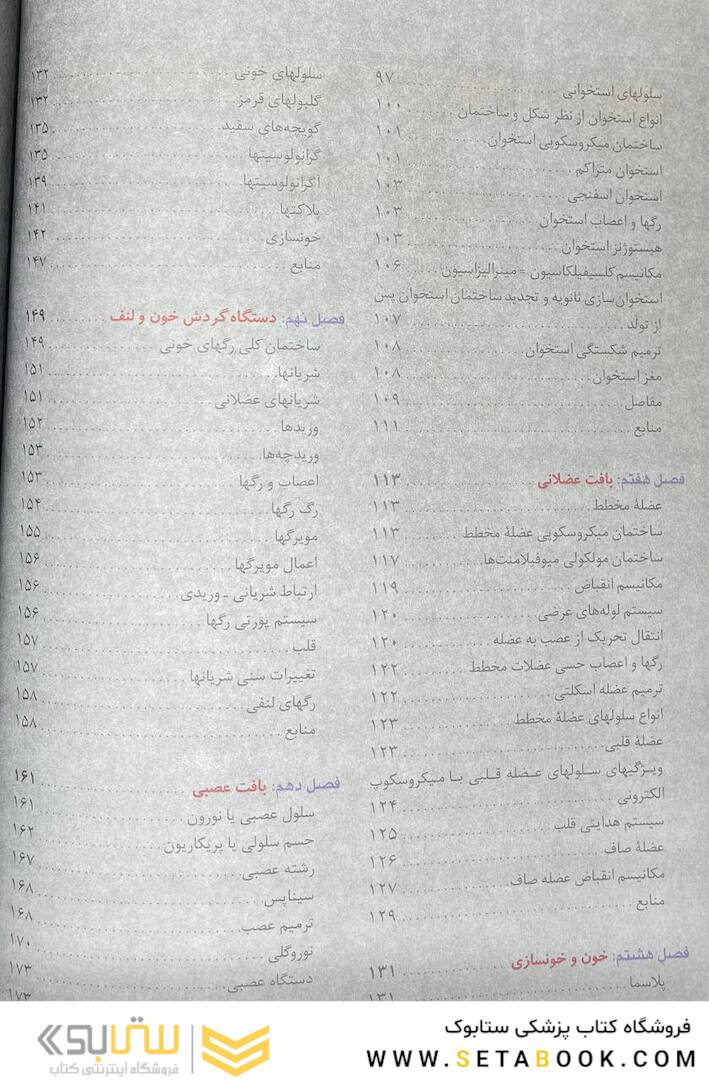 سلولهای استخوانی ۹۷
انواع استخوان از نظر شکل و ساختمان ۱۰۰
ساختمان میکروسکوپی استخوان ۱۰۱
استخوان متراکم ۱۰۱
استخوان اسفنجی ۱۰۳
رگها و اعصاب استخوان ۱۰۳
هیستوژنز استخوان ۱۰۳
مکانیسم کلسیفیکاسیون = مینرالیزاسیون ۱۰۶
استخوان‌سازی ثانویه و تجدید ساختمان استخوان پس
از تولد ۱۰۷
ترمیم شکستگی استخوان ۱۰۸
مغز استخوان ۱۰۸
مفاصل ۱۰۹
منابع ۱۱۱
فصل هفتم: بافت عضلانی ۱۱۳
عضلهٔ مخطط ۱۱۳
ساختمان میکروسکوپی عضلهٔ مخطط ۱۱۳
ساختمان مولکولی میوفیلامنت‌ها ۱۱۷
مکانیسم انقباض ۱۱۹
سیستم لوله‌های عرضی ۱۲۰
انتقال تحریک از عصب به عضله ۱۲۰
رگها و اعصاب حسی عضلات مخطط ۱۲۲
ترمیم عضله اسکلتی ۱۲۲
انواع سلولهای عضلهٔ مخطط ۱۲۳
عضلهٔ قلبی ۱۲۳
ویـژگیهای سـلولهای عـضله قـلبی بـا مـیکروسکوپ
الکترونی ۱۲۴
سیستم هدایتی قلب ۱۲۵
عضلهٔ صاف ۱۲۶
مکانیسم انقباض عضله صاف ۱۲۷
منابع ۱۲۹
فصل هشتم: خون و خونسازی ۱۳۱
پلاسما ۱۳۱
سلولهای خونی ۱۳۲
گلبولهای قرمز ۱۳۲
گویچه‌های سفید ۱۳۵
گرانولوسیتها ۱۳۵
اگرانولوسیتها ۱۳۹
پلاکتها ۱۴۱
خونسازی ۱۴۲
منابع ۱۴۷
فصل نهم: دستگاه گردش خون و لنف ۱۴۹
ساختمان کلی رگهای خونی ۱۴۹
شریانها ۱۵۱
شریانهای عضلانی ۱۵۱
وریدها ۱۵۲
وریدچه‌ها ۱۵۳
اعصاب و رگها ۱۵۳
رگ رگها ۱۵۴
مویرگها ۱۵۵
اعمال مویرگها ۱۵۶
ارتباط شریانی ـ وریدی ۱۵۶
سیستم پورتی رگها ۱۵۶
قلب ۱۵۷
تغییرات سنی شریانها ۱۵۷
رگهای لنفی ۱۵۸
منابع ۱۵۸
فصل دهم: بافت عصبی ۱۶۱
سلول عصبی یا نورون ۱۶۱
جسم سلولی یا پریکاریون ۱۶۲
رشته عصبی ۱۶۷
سیناپس ۱۶۸
ترمیم عصب ۱۶۸
نوروگلی ۱۷۰
دستگاه عصبی ۱۷۳
۱۷۳
فروشگاه کتاب پزشکی ستابوک
WWW.SETABOOK.COM
ستابوک
فروشگاه اینترنتی کتاب